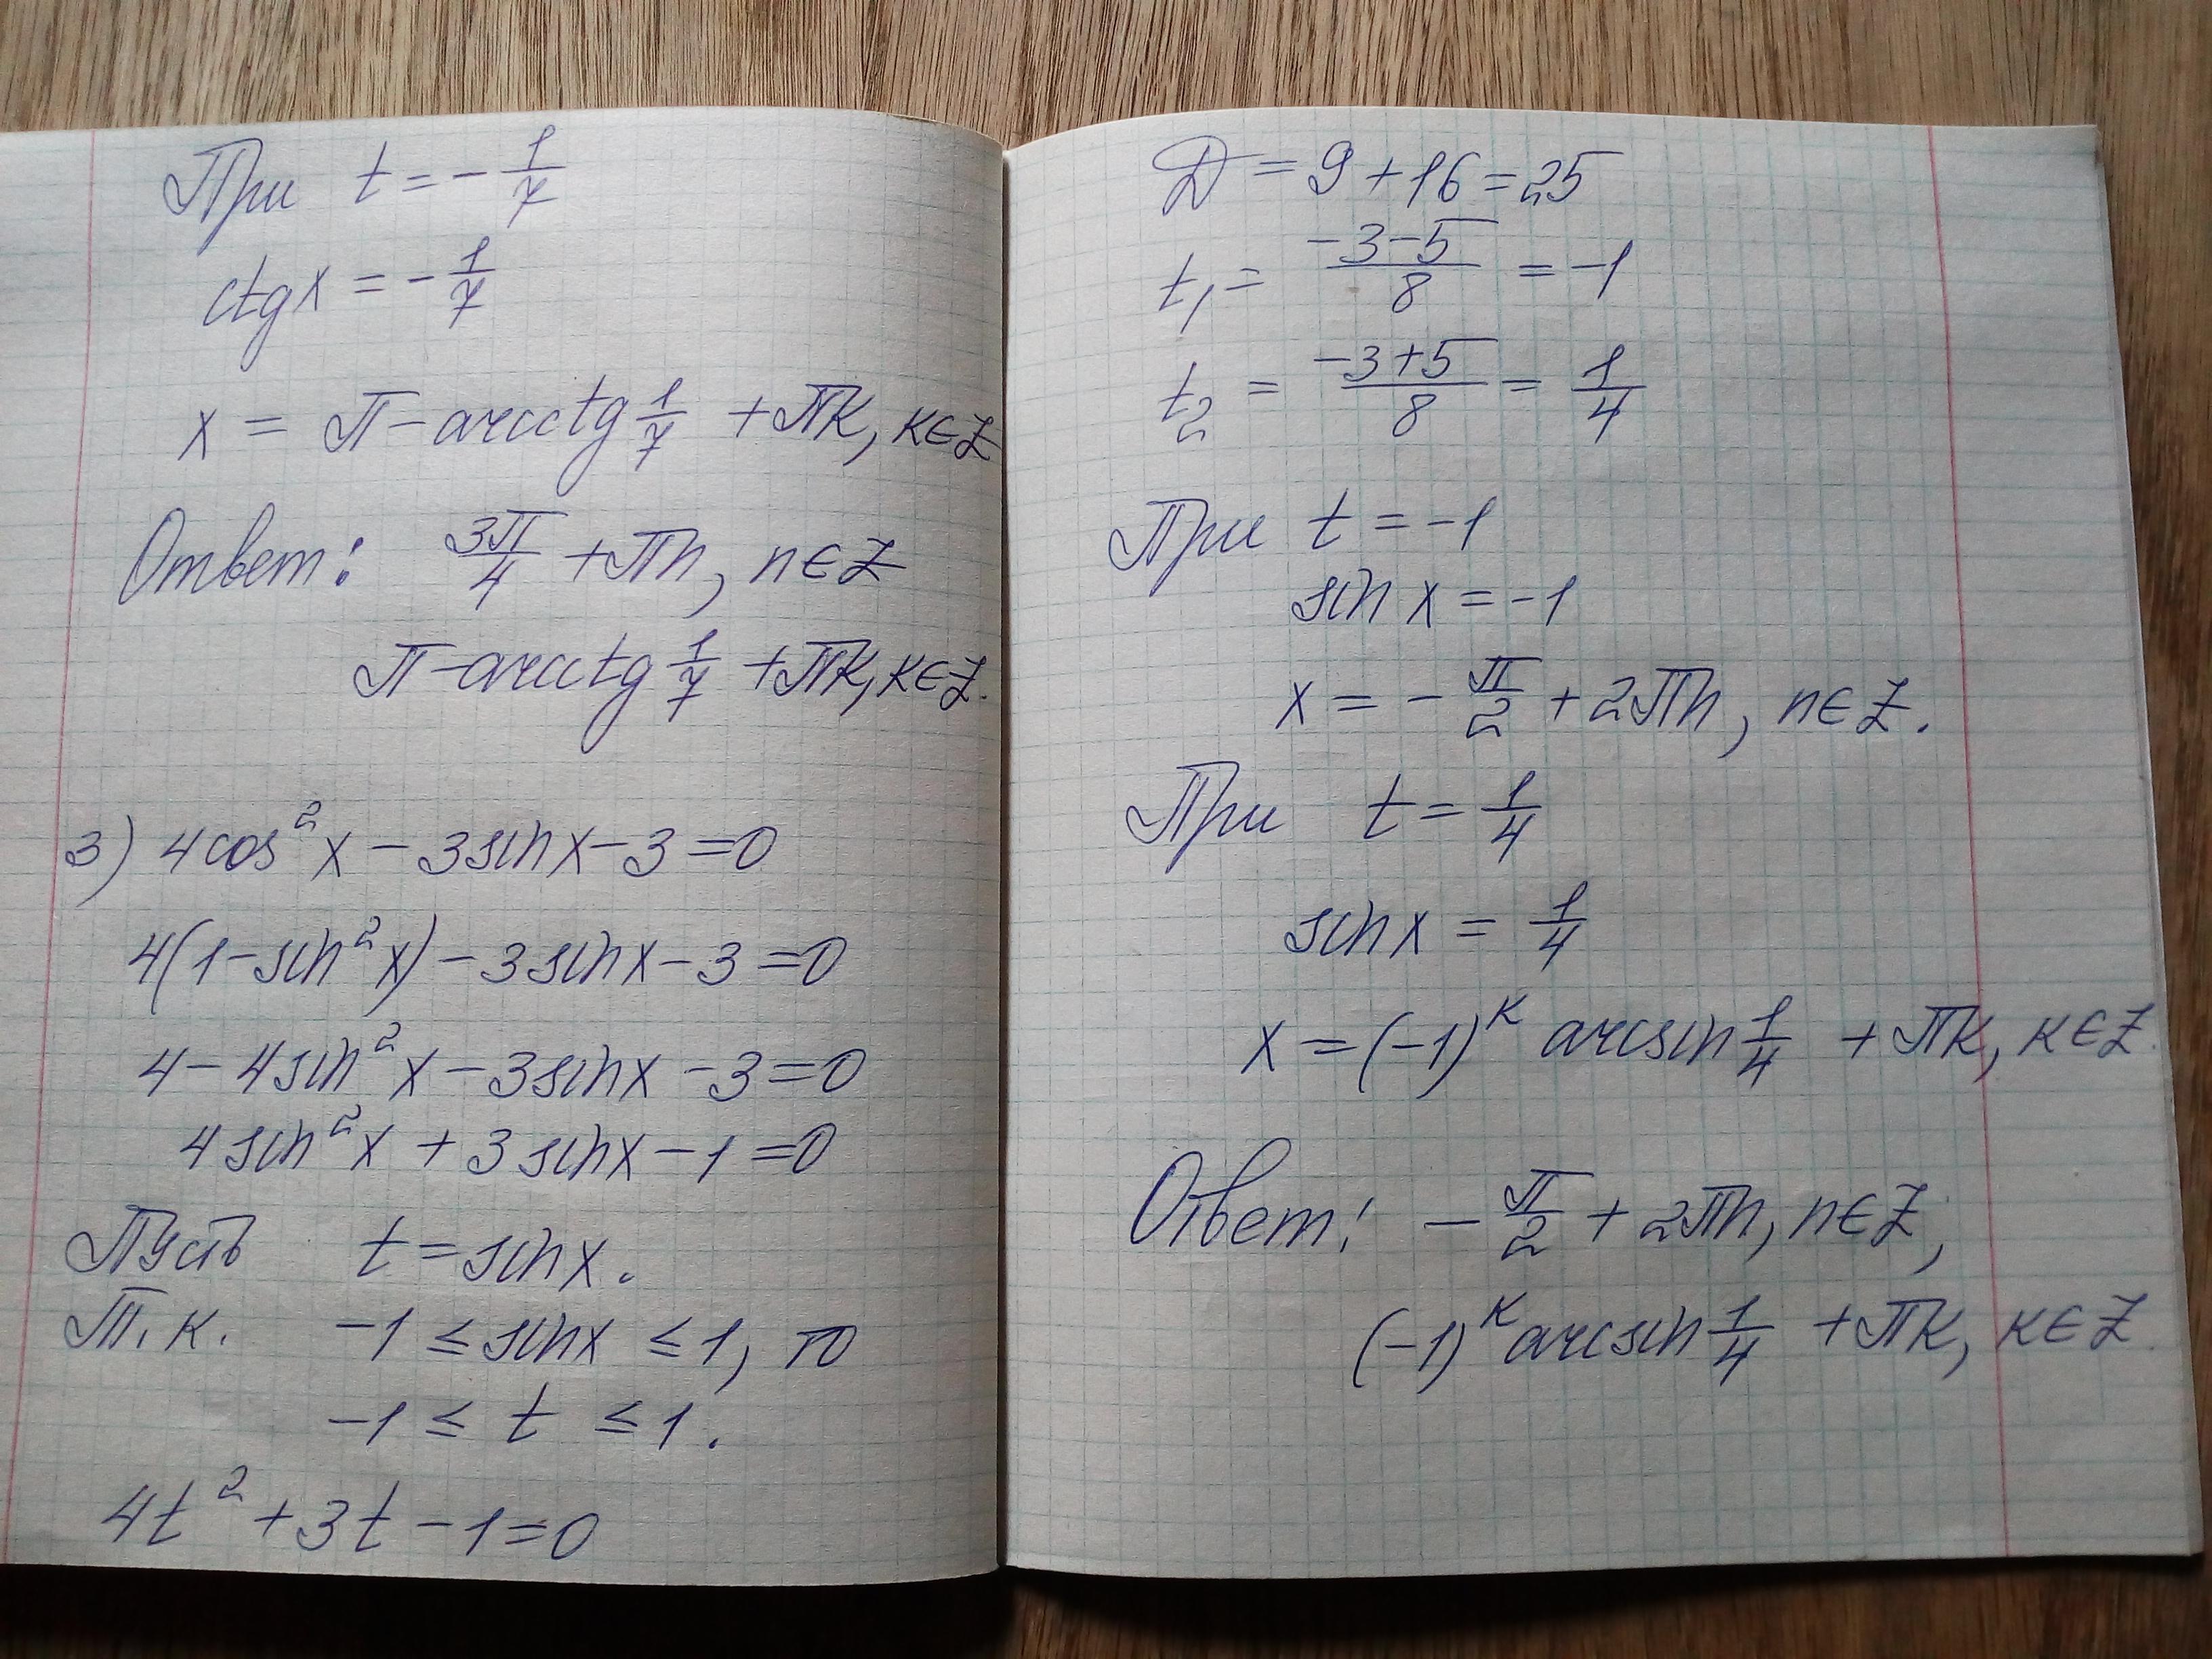 При t = -1/7
ctgx = -1/7
x = π - arcctg 1/7 + πk, k∈Z
Ответ: 3π/4 + πn, n∈Z
π - arcctg 1/7 + πk, k∈Z.
3) 4cos²x - 3sinx - 3 = 0
4(1 - sin²x) - 3sinx - 3 = 0
4 - 4sin²x - 3sinx - 3 = 0
4sin²x + 3sinx - 1 = 0
Пусть t = sinx.
Т.к. -1 ≤ sinx ≤ 1, то
-1 ≤ t ≤ 1.
4t² + 3t - 1 = 0
Д = 9 + 16 = 25
t₁ = (-3-5)/8 = -1
t₂ = (-3+5)/8 = 1/4
При t = -1
sin x = -1
x = -π/2 + 2πn, n∈Z.
При t = 1/4
sinx = 1/4
x = (-1)^k arcsin 1/4 + πk, k∈Z.
Ответ: -π/2 + 2πn, n∈Z,
(-1)^k arcsin 1/4 + πk, k∈Z.